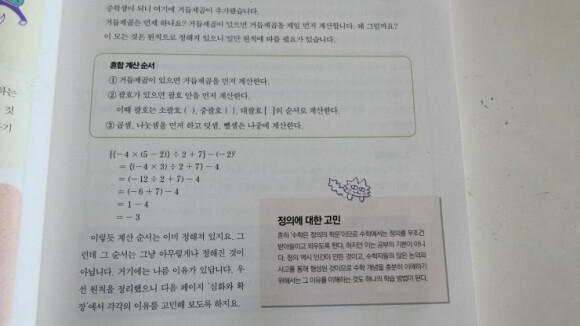 중학생이 되니 여기에 거듭제곱이 추가됐습니다.
거듭제곱은 언제 하나요? 거듭제곱이 있으면 거듭제곱을 제일 먼저 계산합니다. 왜 그럴까요?
이 모든 것은 원칙으로 정해져 있으니 일단 원칙에 따를 필요가 있습니다.
혼합 계산 순서
① 거듭제곱이 있으면 거듭제곱을 먼저 계산한다.
② 괄호가 있으면 괄호 안을 먼저 계산한다.
이때 괄호는 소괄호 ( ), 중괄호 { }, 대괄호 [ ]의 순서로 계산한다.
③ 곱셈, 나눗셈을 먼저 하고 덧셈, 뺄셈은 나중에 계산한다.
[{-4 × (5 - 2)} ÷ 2 + 7] - (-2)²
= {(-4 × 3) ÷ 2 + 7} - 4
= (-12 ÷ 2 + 7) - 4
= (-6 + 7) - 4
= 1 - 4
= - 3
이렇듯 계산 순서는 이미 정해져 있지요. 그
런데 그 순서는 그냥 아무렇게나 정해진 것이
아닙니다. 거기에는 나름 이유가 있답니다. 우
선 원칙을 정리했으니 다음 페이지 '심화와 확
장'에서 각각의 이유를 고민해 보도록 하지요.
정의에 대한 고민
흔히 '수학은 정의의 학문'이므로 수학에서는 정의를 무조건
받아들이고 외우도록 한다. 하지만 이는 공부의 기본이 아니
다. 정의 역시 인간이 만든 것이고, 수학자들의 많은 논의와
사고를 통해 형성된 것이므로 수학 개념을 충분히 이해하기
위해서는 그 이유를 이해하는 것도 하나의 학습 방법이 된다.
하는
것